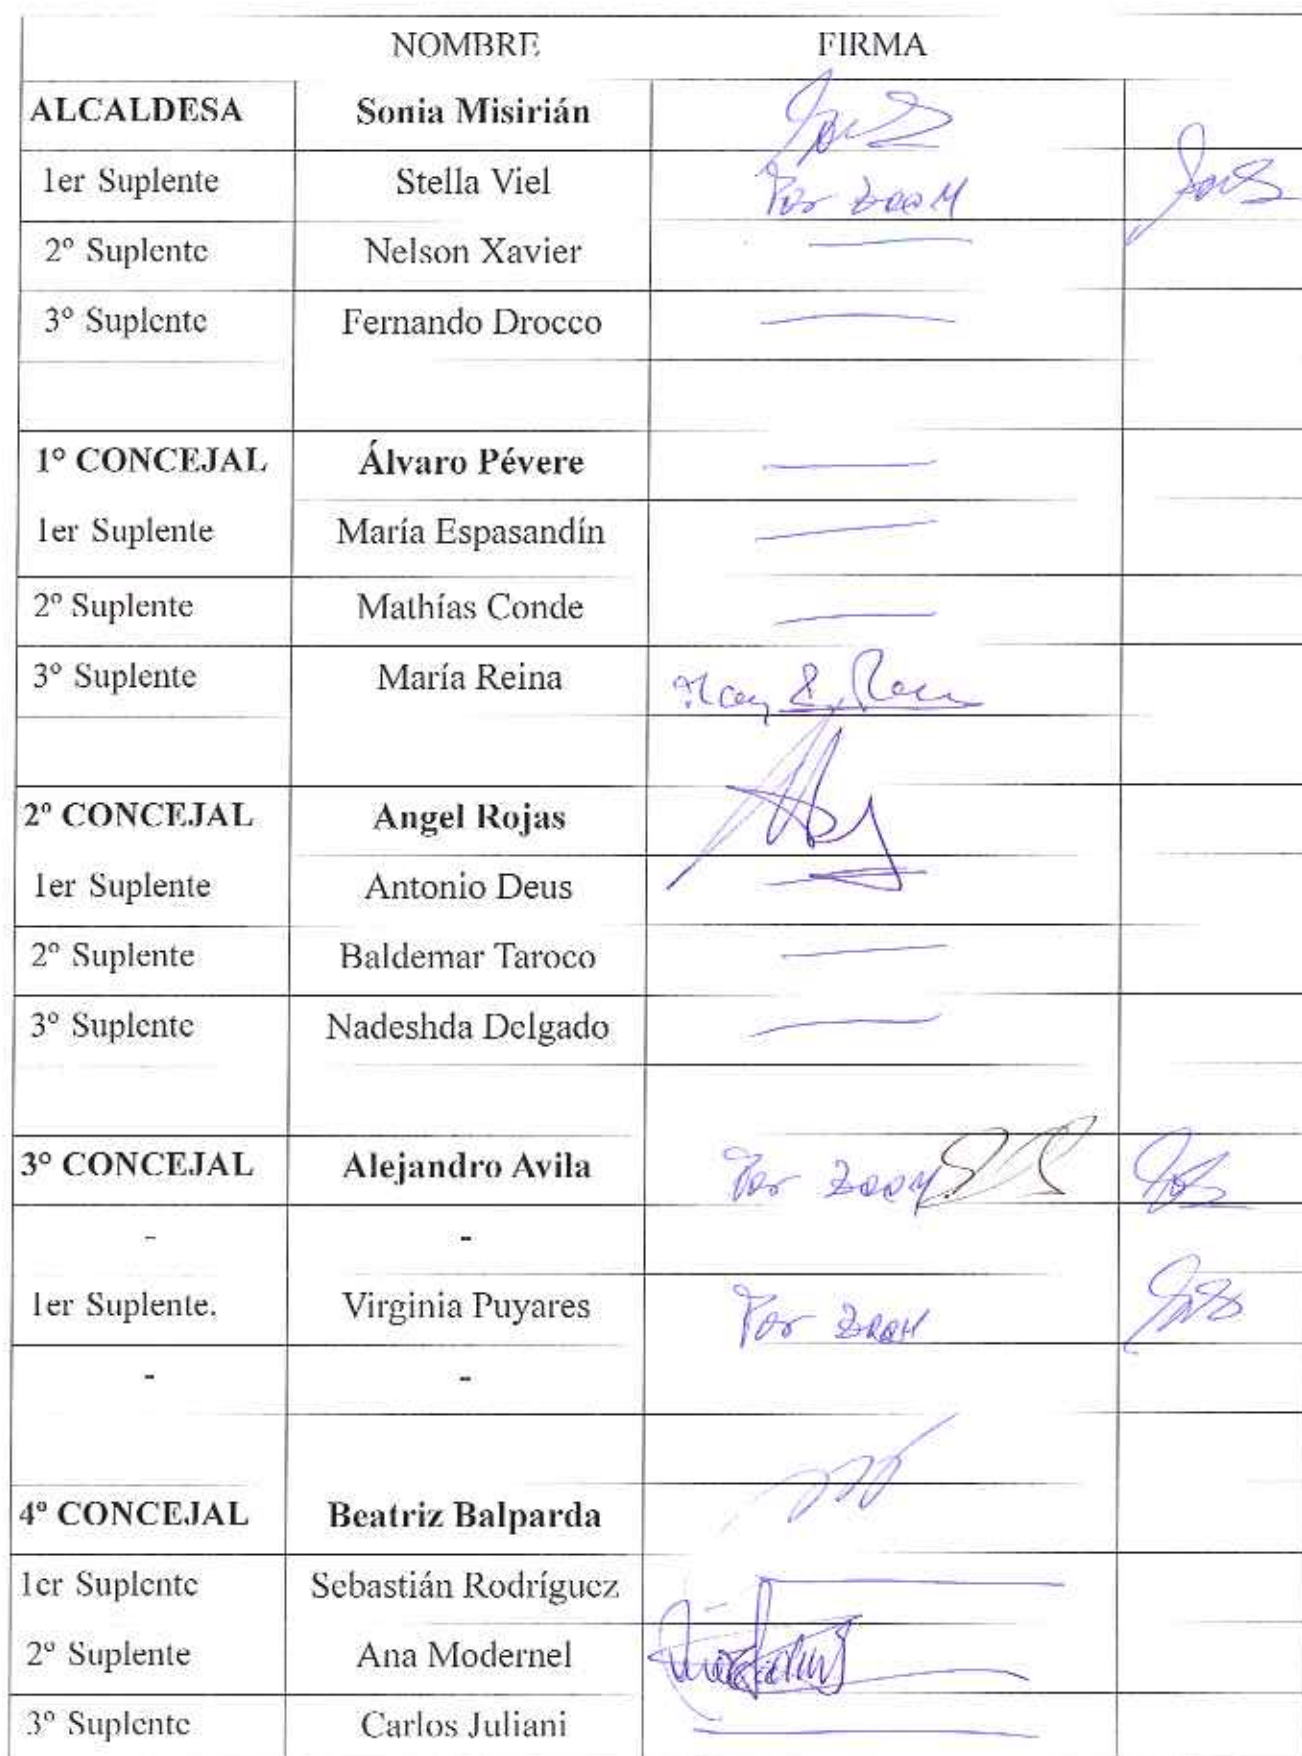 NOMBRE FIRMA
ALCALDESA Sonia Misirián
1er Suplente Stella Viel Por ZOOM
2º Suplente Nelson Xavier
3º Suplente Fernando Drocco
1º CONCEJAL Álvaro Pévere
1er Suplente María Espasandín
2º Suplente Mathías Conde
3º Suplente María Reina
2º CONCEJAL Angel Rojas
1er Suplente Antonio Deus
2º Suplente Baldemar Taroco
3º Suplente Nadeshda Delgado
3º CONCEJAL Alejandro Avila Por ZOOM
- -
1er Suplente. Virginia Puyares Por ZOOM
- -
4º CONCEJAL Beatriz Balparda
1er Suplente Sebastián Rodríguez
2º Suplente Ana Modernel
3º Suplente Carlos Juliani